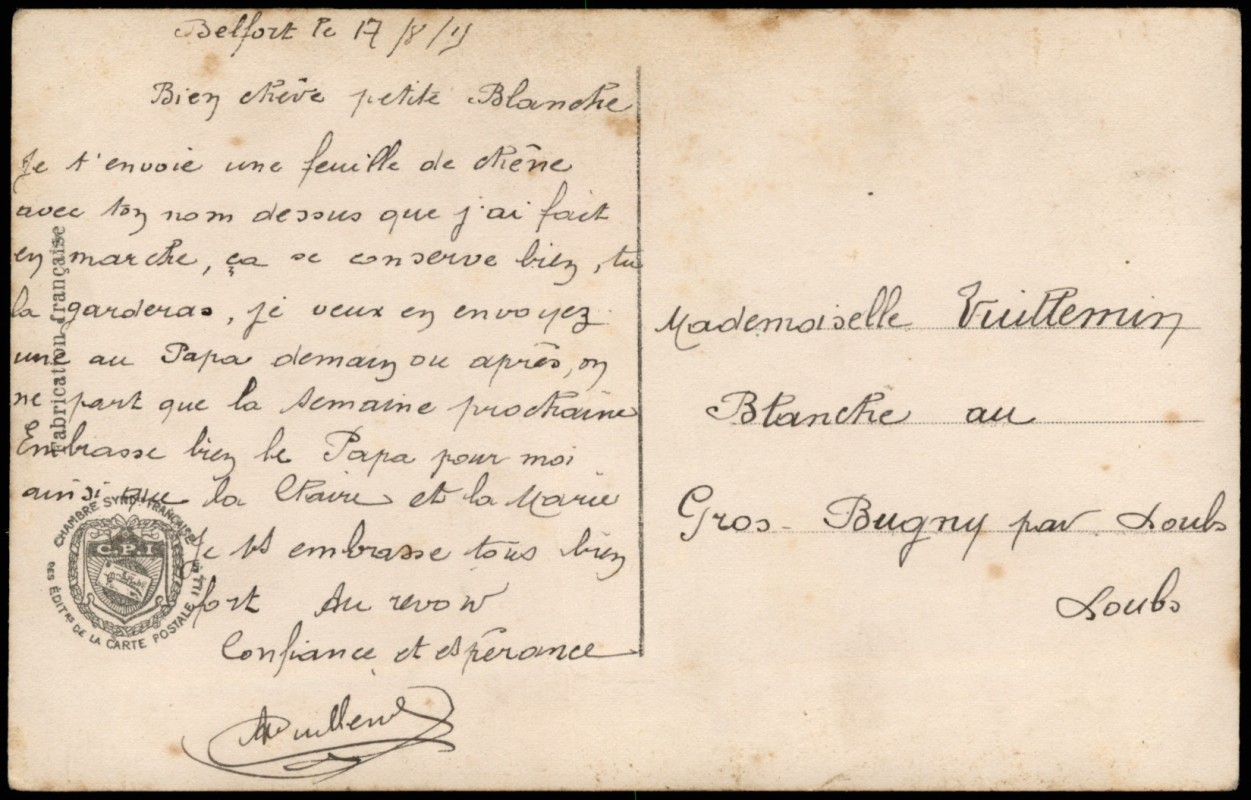 Belfort le 17/8/15
Bien chère petite Blanche
Je t'envoie une feuille de chêne
avec ton nom dessus que j'ai fait
en marche, ça se conserve bien, tu
la garderas, je veux en envoyez
une au Papa demain ou après, on
ne part que la semaine prochaine
Embrasse bien le Papa pour moi
ainsi que la Claire et la Marie
Je vs embrasse tous bien
fort Au revoir
Confiance et espérance
Fabrication française
CHAMBRE SYND. FRANÇAISE
DES ÉDITRS DE LA CARTE POSTALE ILLÉE
C.P.I
Mademoiselle Vuillemin
Blanche au
Gros-Bugny par Doubs
Doubs